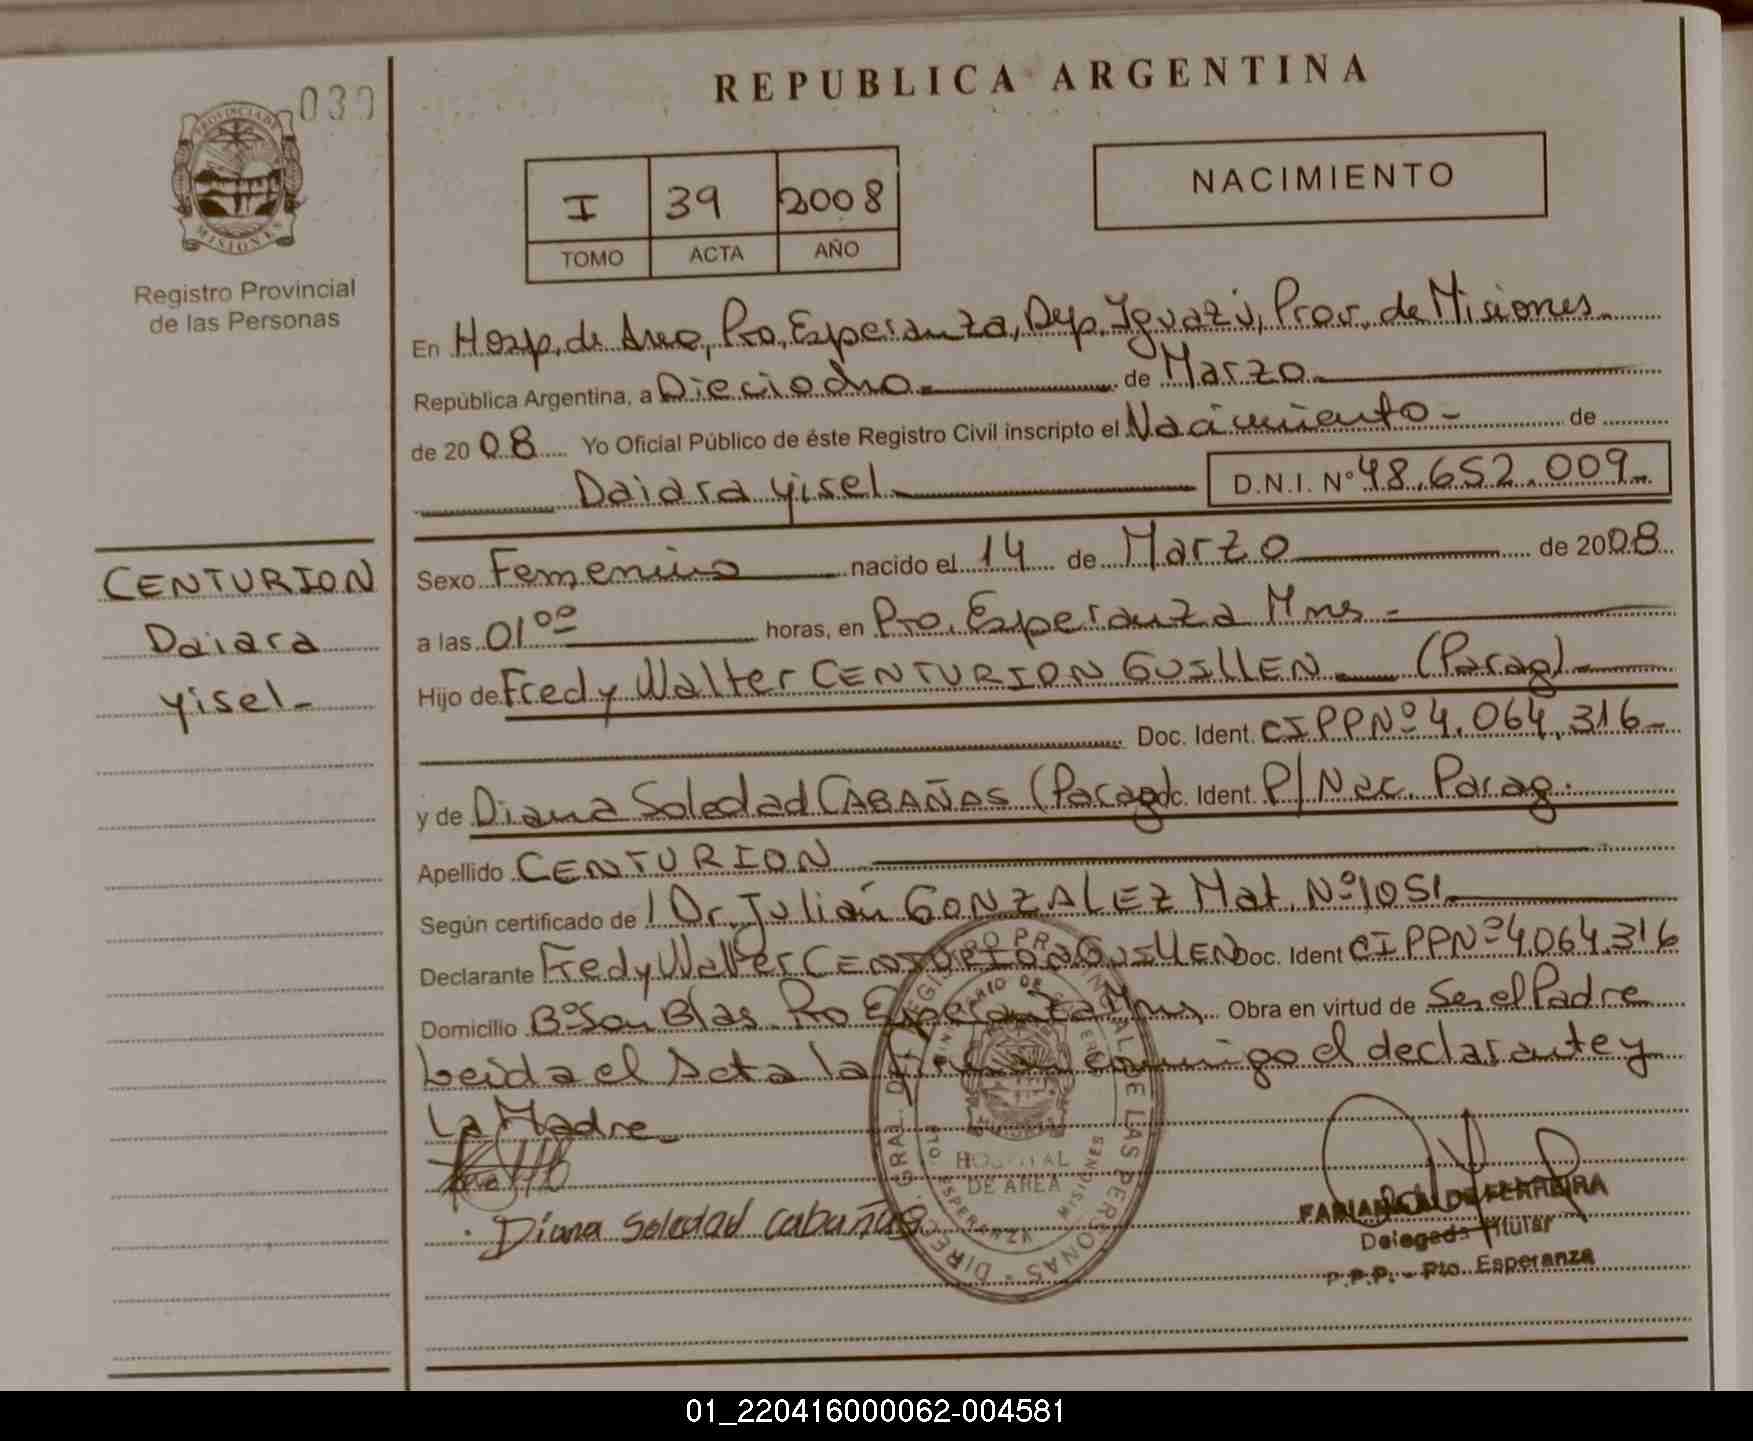 REPUBLICA ARGENTINA
PROVINCIA DE MISIONES
Registro Provincial
de las Personas
I 39 2008
TOMO ACTA AÑO
NACIMIENTO
En Hosp. de Area, Pto. Esperanza, Dep. Iguazú, Prov. de Misiones
República Argentina, a Dieciocho de Marzo
de 2008 Yo Oficial Público de éste Registro Civil inscripto el Nacimiento - de
Daiara yisel D.N.I. Nº 48.652.009-
CENTURION
Daiara
yisel-
Sexo Femenino nacido el 14 de Marzo de 2008
a las 01 00 horas, en Pto. Esperanza Mnes -
Hijo de Fredy Walter CENTURION (Parag)-
Doc. Ident. CI PP Nº 4.064.316-
y de Diana Soledad CABAÑAS (Parag) Doc. Ident. P/ Nac. Parag.
Apellido CENTURION
Según certificado de / Dr. Julián GONZALEZ Mat. Nº 1051
Declarante Fredy Walter CENTURION Doc. Ident CI PP Nº 4.064.316
Domicilio Bº San Blas Pto Esperanza Mnes Obra en virtud de Ser el Padre
Leida el Acta la firman conmigo el declarante y
La Madre-
Diana Soledad Cabañas
HOSPITAL
DE AREA
FERREIRA
Delegada Titular
R.P.P. - Pto. Esperanza
01_220416000062-004581